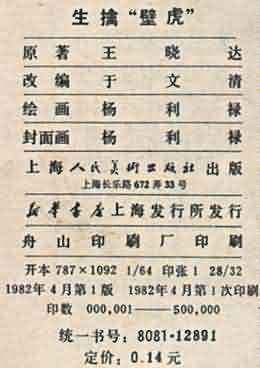 生擒“壁虎”
原著王晓达
改编于文清
绘画杨利禄
封面画杨利禄
上海人民美术出版社出版
上海长乐路672弄33号
新华书店上海发行所发行
舟山印刷厂印刷
开本787×1092 1/64 印张1 28/32
1982年4月第1版 1982年4月第1次印刷
印数 000,001——500,000
统一书号：8081·12891
定价：0.14元